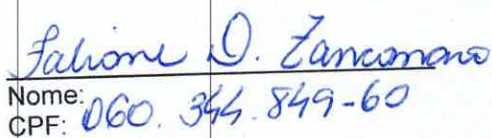 Fabiane D. Zanconaro
Nome:
CPF: 060. 344. 849-60